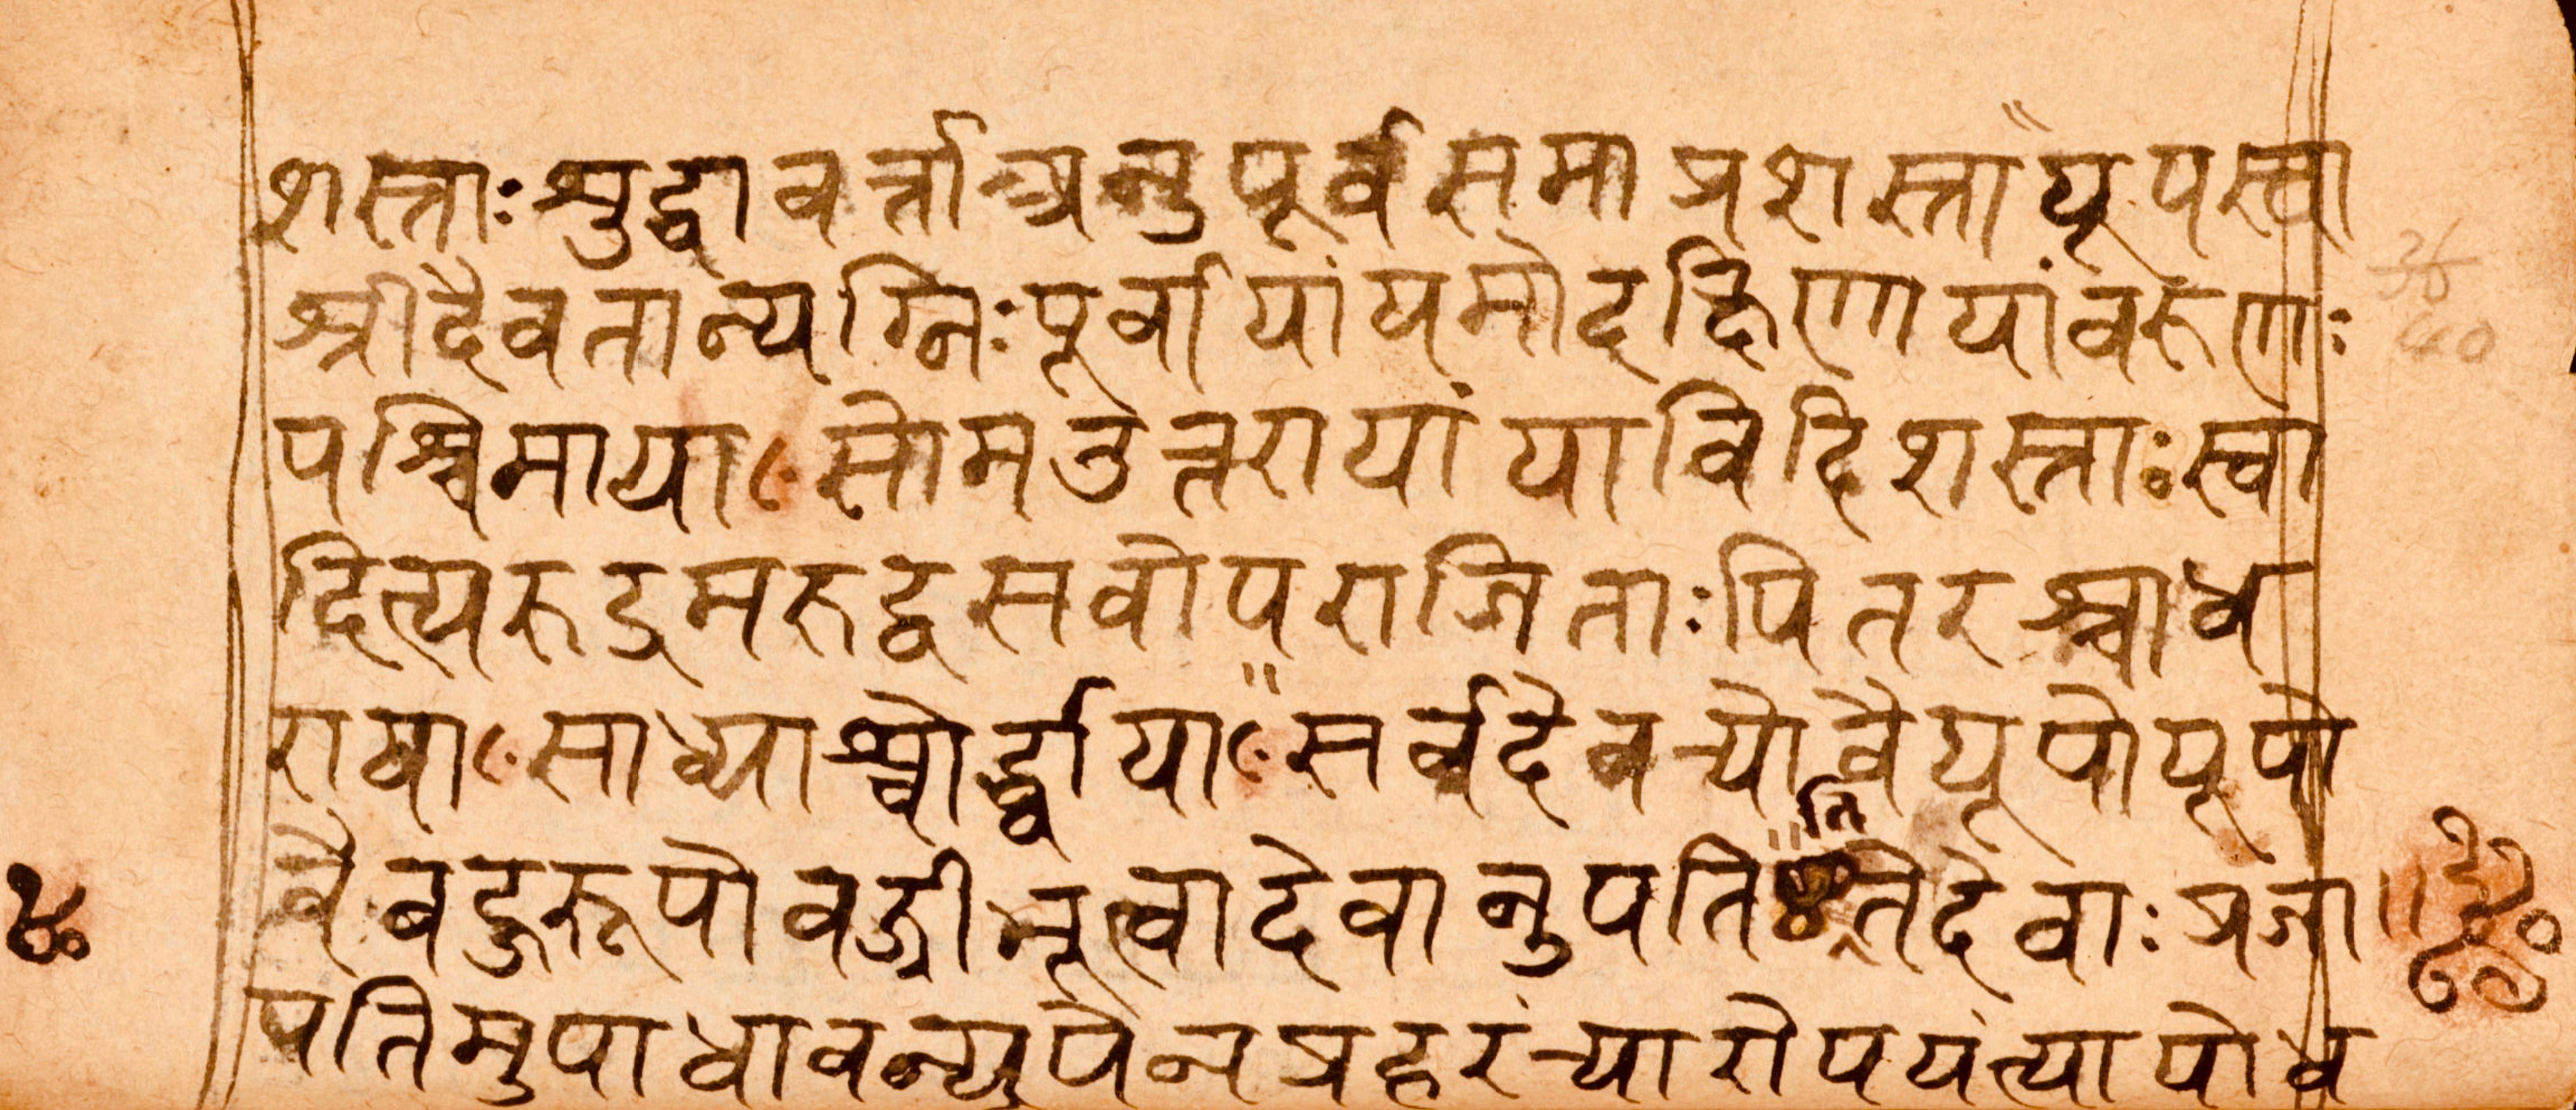 शस्ताः शुद्धावर्त्ताश्चानुपूर्वसमा प्रशस्ता यूपस्त्वा
श्रीदैवतान्यग्निः पूर्वायां यमो दक्षिणायां वरुणः
पश्चिमाया ꣳ सोम उत्तरायां या विदिशस्ताः स्वा
दित्यरुद्रमरुद्वसवोपराजिताः पितरश्चाध
राया ꣳ साध्याश्चोर्द्ध्वाया ꣳ सर्वदेवत्यो वै यूपो यूपो
वै बहुरूपो वज्री भूत्वा देवानुपति ति ते देवाः प्रजा
पतिमुपाधावन्यूपेन प्रहरंत्यारोपयंत्यापो व